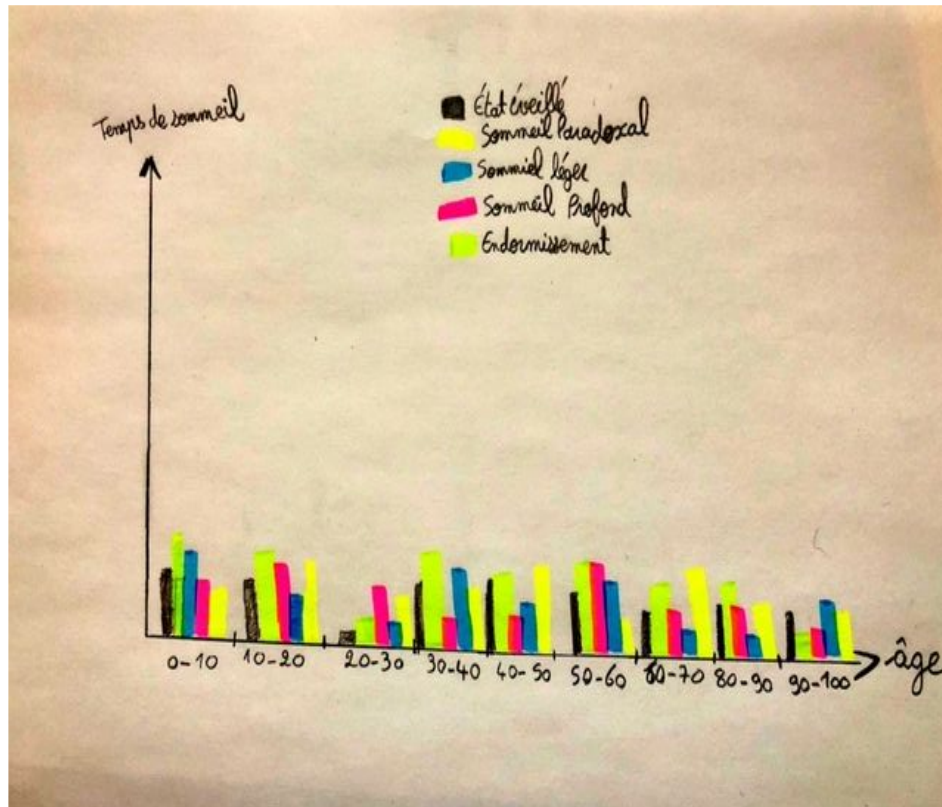 Temps de sommeil
État éveillé
Sommeil Paradoxal
Sommiel léger
Sommeil Profond
Endormissement
0-10 10-20 20-30 30-40 40-50 50-60 60-70 80-90 90-100 âge